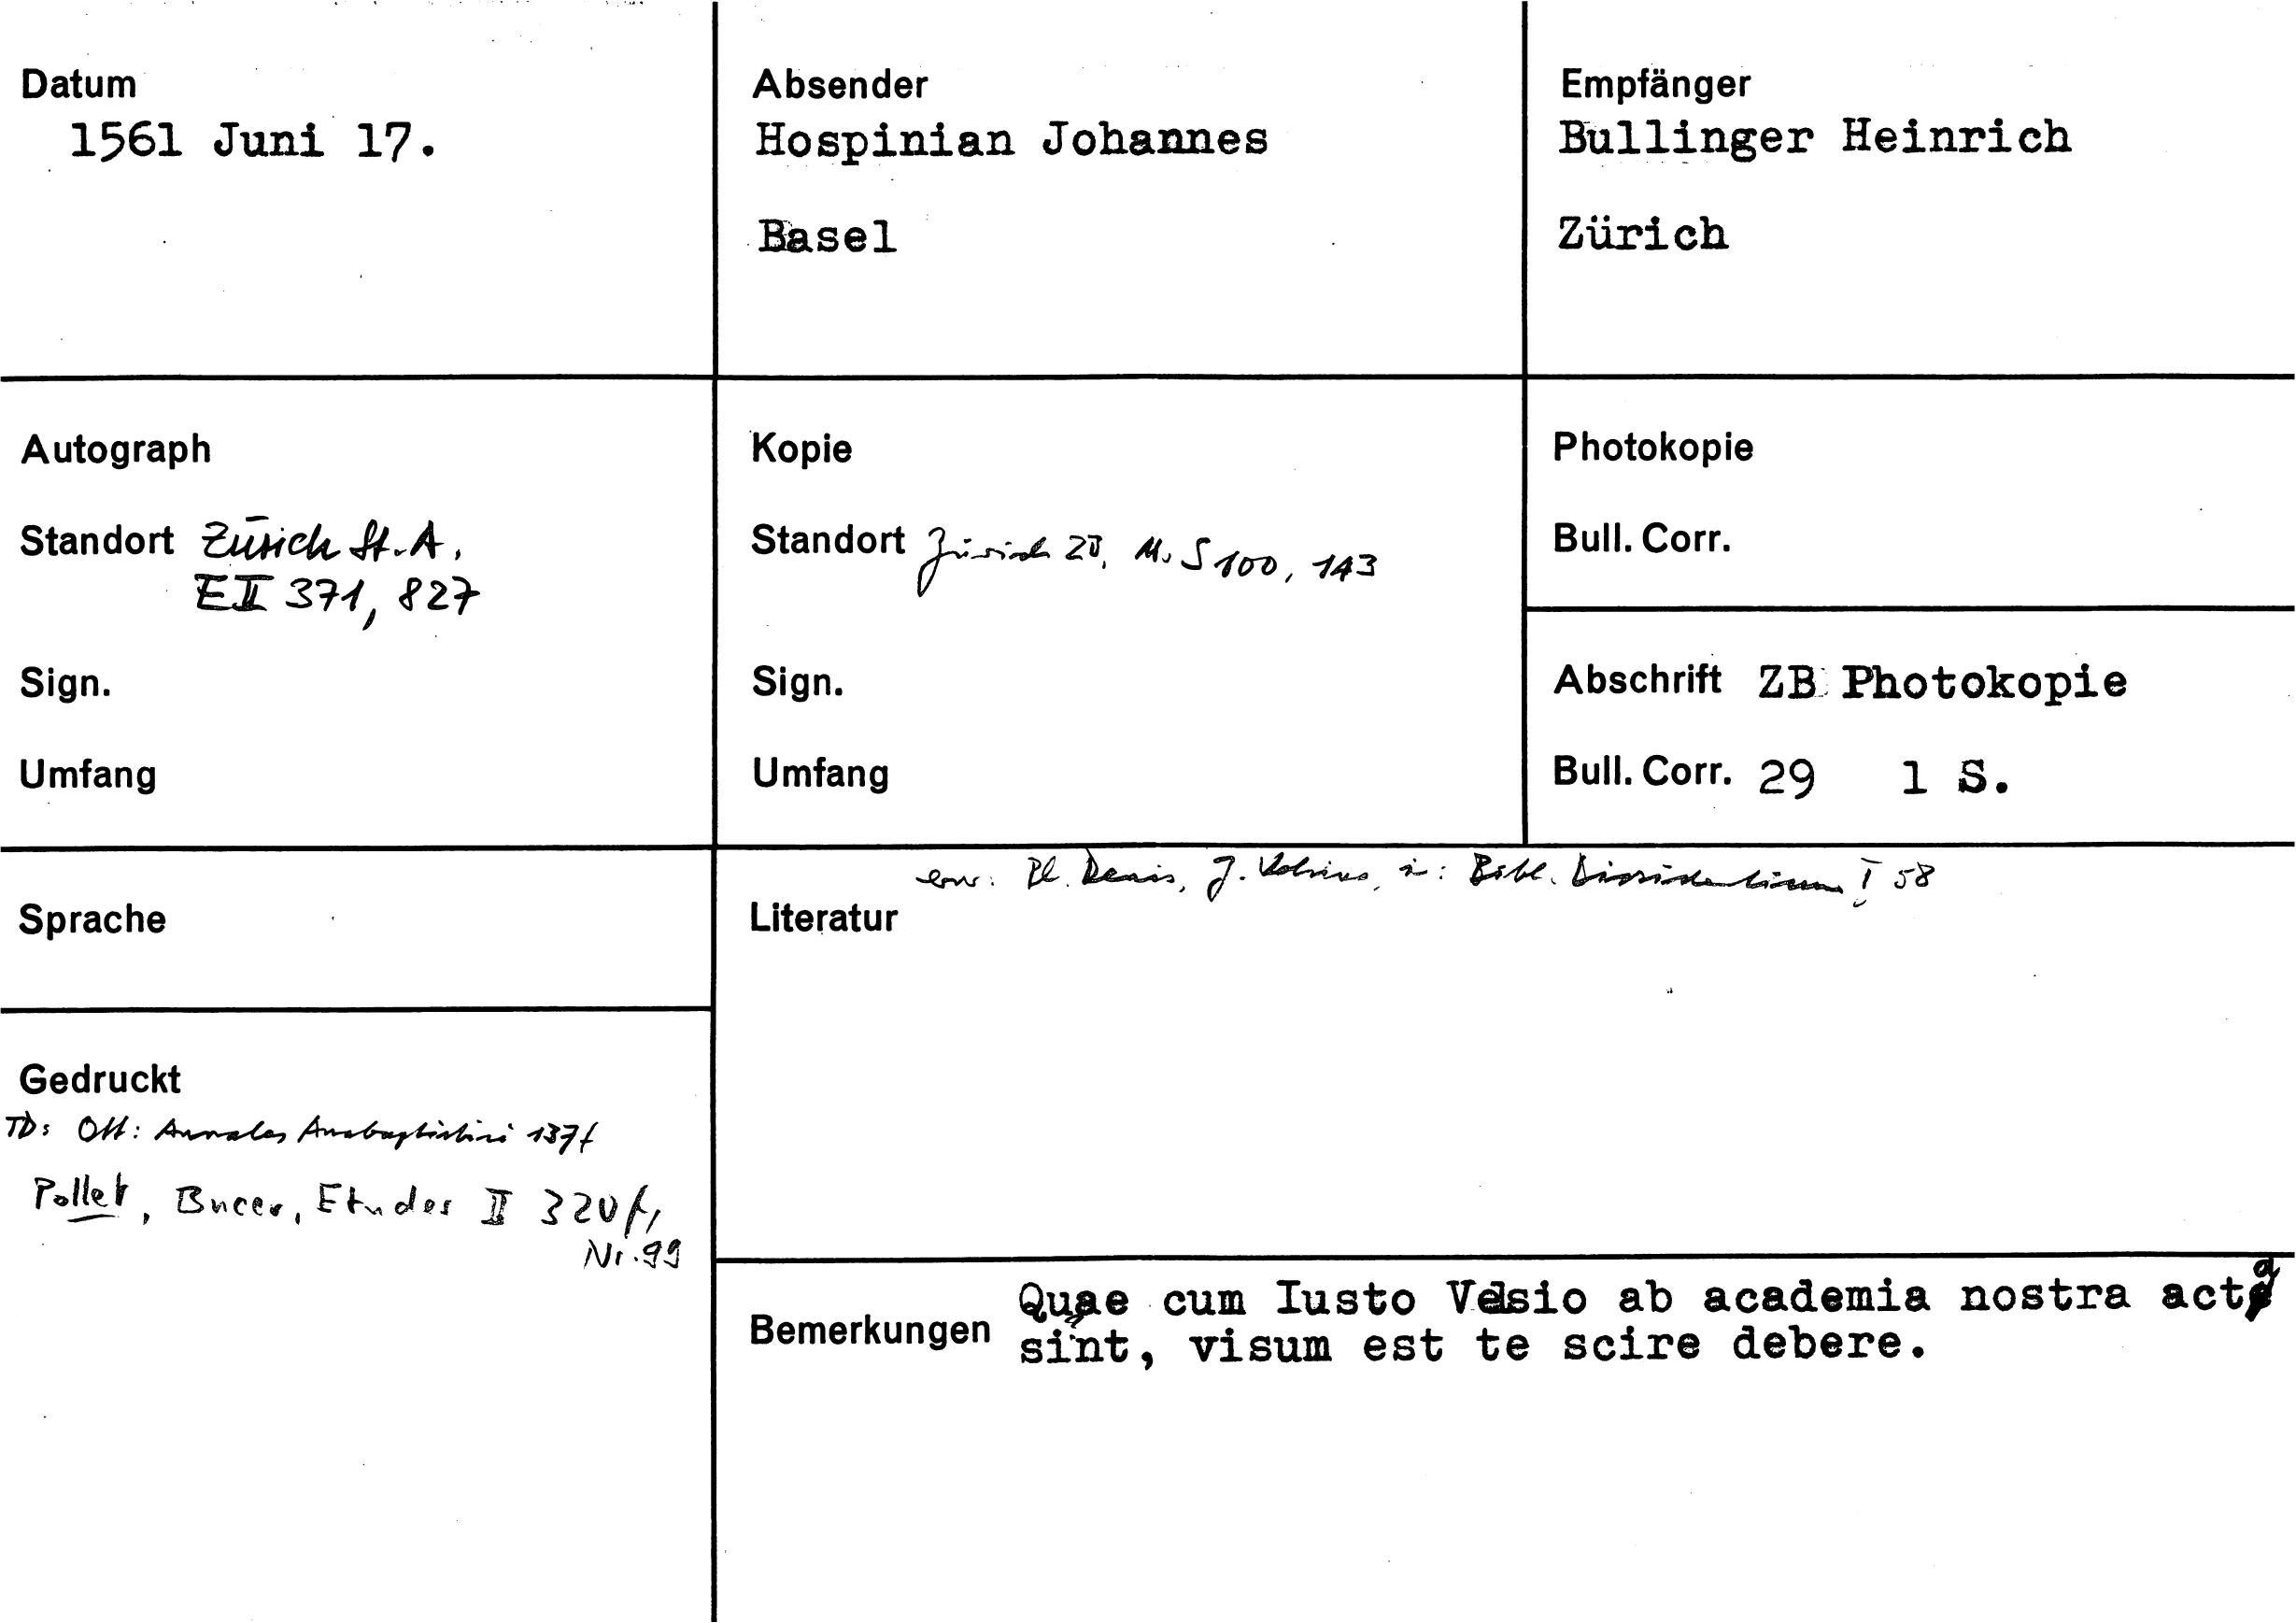 Datum
1561 Juni 17.
Absender
Hospinian Johannes
Basel
Empfänger
Bullinger Heinrich
Zürich
Autograph
Standort Zürich St.A,
EII 371, 827
Sign.
Umfang
Kopie
Standort Zürich ZB, Ms S 100, 143
Sign.
Umfang
Photokopie
Bull. Corr.
Abschrift ZB Photokopie
Bull. Corr. 29 1 S.
Sprache
Gedruckt
TD: Ott: Annales Anabaptistici 137f
Pollet, Bucer, Etudes II 320f,
Nr. 99
erw: Ph. Denis, J. Velsius, in: Bibl. Dissidentium I 58
Literatur
Bemerkungen
Quae cum Iusto Velsio ab academia nostra acta
sint, visum est te scire debere.